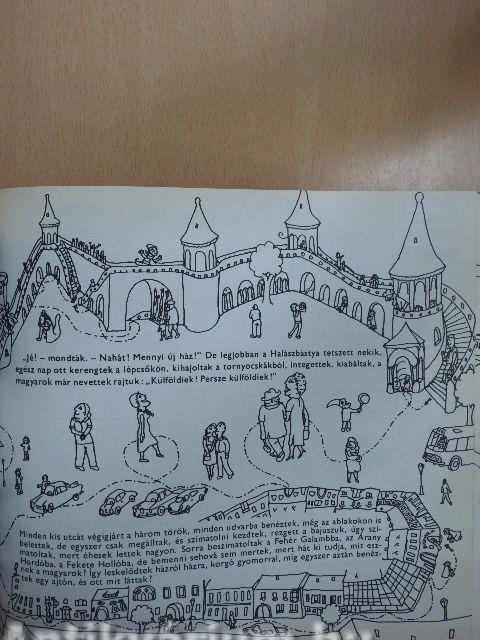 „Jé! – mondták. – Nahát! Mennyi új ház!" De legjobban a Halászbástya tetszett nekik,
egész nap ott kerengtek a lépcsőkön, kihajoltak a tornyocskákból, integettek, kiabáltak, a
magyarok már nevettek rajtuk: „Külföldiek! Persze külföldiek!"
Minden kis utcát végigjárt a három török, minden udvarba benéztek, még az ablakokon is
belestek, de egyszer csak megálltak, és szimatolni kezdtek, rezgett a bajuszuk, úgy szi-
matoltak, mert éhesek lettek nagyon. Sorra beszimatoltak a Fehér Galambba, az Arany
Hordóba, a Fekete Hollóba, de bemenni sehová sem mertek, mert hát ki tudja, mit esz-
nek a magyarok? Így leskelődtek házról házra, korgó gyomorral, míg egyszer aztán benéz-
tek egy ajtón, és ott mit láttak?